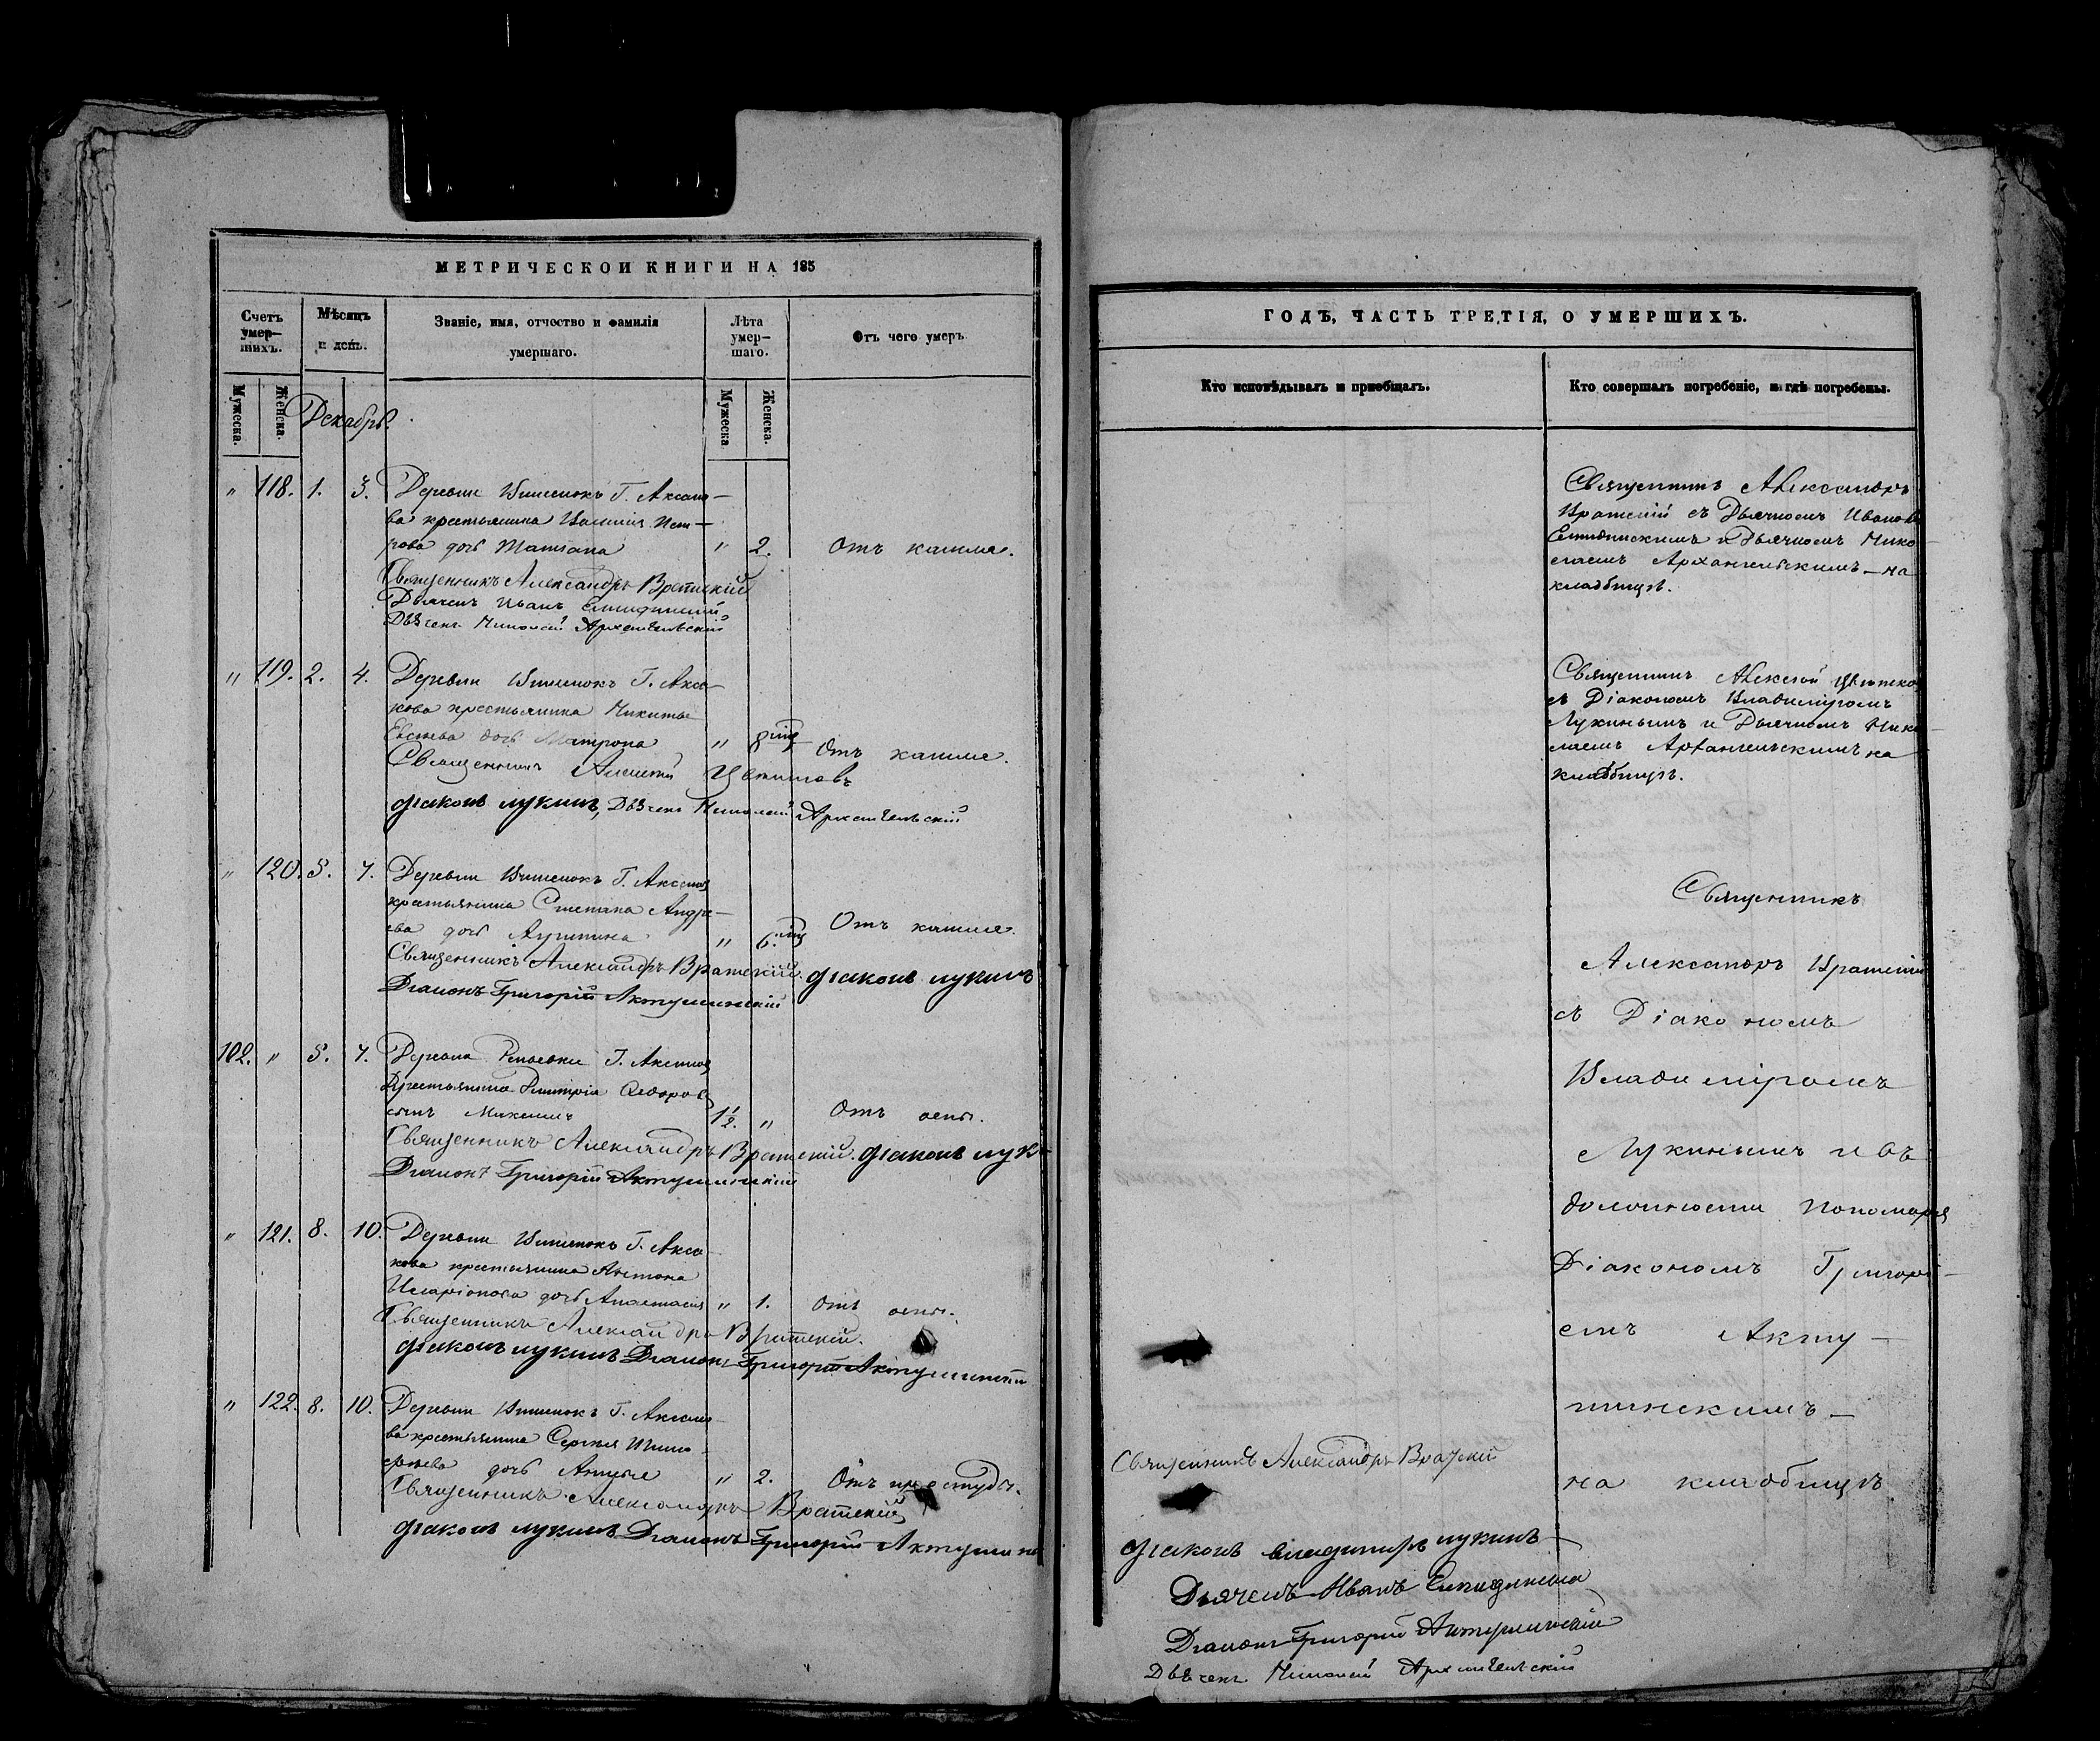 МЕТРИЧЕСКОЙ КНИГИ НА 185
Счетъ умер-
шихъ.
Мѣсяцъ
и день.
Званіе, имя, отчество и фамилія
умершаго.
Лѣта
умер-
шаго.
Отъ чего умеръ
Мужеска.
Женска.
Мужеска
Женска.
Декабрь.
" 118. 1. 3. Деревни Вишенокъ Г. Аксако-
ва крестьянина Пет-
рова дочь Татіана " 2. Отъ кашля.
Священникъ Александръ Вратскій
Дьячекъ Иванъ
Дьячекъ Николай Архангельскій
" 119. 2. 4. Деревни Вишенокъ Г. Акса-
кова крестьянина Никиты
дочь Матрона " 8 Отъ кашля.
Священникъ Алексей Цвѣтковъ
Діаконъ Лукинъ, Дьячекъ Николай Архангельскій
" 120. 5. 7. Деревни Вишенокъ Г. Аксакова
крестьянина Степана Андре-
ева дочь " 6. Отъ кашля.
Священникъ Александръ Вратскій. Діаконъ Лукинъ
Діаконъ Григорій Актушинскій
102. " 5. 7. Деревни Репьевки Г. Аксакова
Крестьянина Димитрія Ѳедорова
сынъ 1 1/2. " Отъ оспы.
Священникъ Александръ Вратскій. Діаконъ Лук
Діаконъ Григорій Актушинскій
" 121. 8. 10. Деревни Вишенокъ Г. Акса-
кова крестьянина Антона
Иларіонова дочь Анастасія " 1. Отъ оспы.
Священникъ Александръ Вратскій.
Діаконъ Лукинъ Діаконъ Григорій Актушинскій
" 122. 8. 10. Деревни Вишенокъ Г. Аксако-
ва крестьянина Сергея
дочь " 2. Отъ простуды.
Священникъ Александръ Вратскій
Діаконъ Лукинъ Діаконъ Григорій Актушинс
ГОДЪ, ЧАСТЬ ТРЕТІЯ, О УМЕРШИХЪ.
Кто исповѣдывалъ и приобщалъ.
Кто совершалъ погребеніе, и гдѣ погребены.
Священникъ Александръ
Вратскій съ Дьячкомъ Иваномъ
и Дьячкомъ Нико-
лаемъ Архангельскимъ - на
кладбищѣ.
Священникъ Алексей Цвѣтков
съ Діакономъ Владиміромъ
Лукинымъ и Дьячкомъ Нико-
лаемъ Архангельскимъ на
кладбищѣ.
Священникъ
Александръ Вратскій
съ Діакономъ
Владиміромъ
Лукинымъ и въ
должности Пономаря
Діакономъ Григорі-
емъ Акту-
шинскимъ -
на кладбищѣ
Священникъ Александръ Вратскій
Діаконъ Владимиръ Лукинъ
Дьячекъ Иванъ
Діаконъ Григорій Актушинскій
Дьячекъ Николай Архангельскій